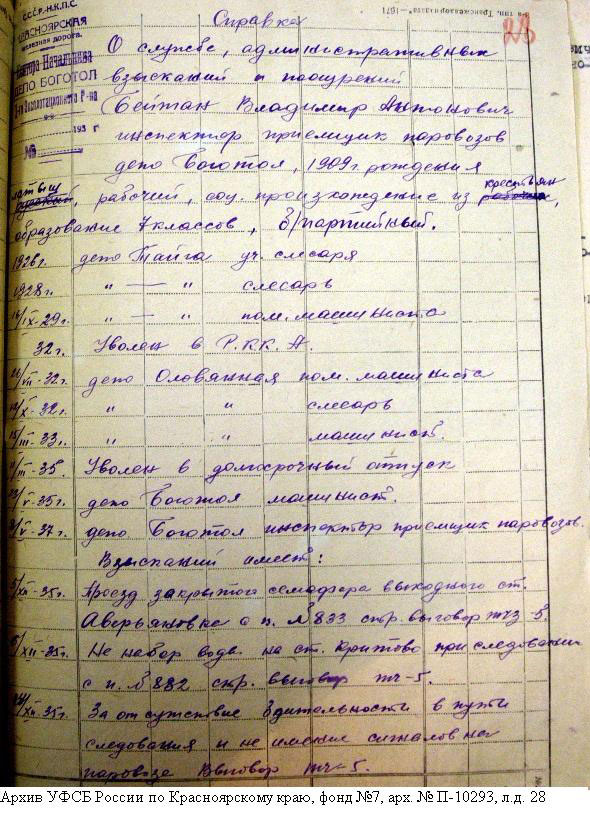 С.С.С.Р.-Н.К.П.С.
КРАСНОЯРСКАЯ
железная дорога.
Контора Начальника
ДЕПО БОГОТОЛ
Эксплоатационного Р-на
193 г
№
тип. „Трансжелдориздата"—1671
28
Справка
О службе, административных
взысканий и поощрений
Бейтан Владимир Антонович
инспектор приемщик паровозов
депо Боготол, 1909 г. рождения
крестьян
латыш, рабочий, соц. произхождение из рабочих,
образование 7 классов, б/партийный.
1926 г. депо Тайга уч. слесаря
1928 г. " — " слесарь
16/IX-29 г. " — " пом. машиниста
32 г. Уволен в Р.К.К.А.
/VII-32 г. депо Оловянная пом. машиниста
/X-32 г. " " слесарь
15/III-33 г. " " машинист.
11/III-35. Уволен в долгосрочный отпуск
/V-35 г. депо Боготол машинист.
/V-37 г. депо Боготол инспектор приемщик паровозов.
Взысканий имеет:
5/XII-35 г. Проезд закрытого семафора выходного ст.
Аверьяновке с п. № 833 стр. выговор тчз-5.
/XII-35 г. Не набор воды на ст. Критово при следовании
с п. № 882 стр. выговор тч-5.
/XII-35 г. За отсутствие бдительности в пути
следования и не имение сигналов на
паровозе выговор тч-5.
Архив УФСБ России по Красноярскому краю, фонд №7, арх. № П-10293, л.д. 28